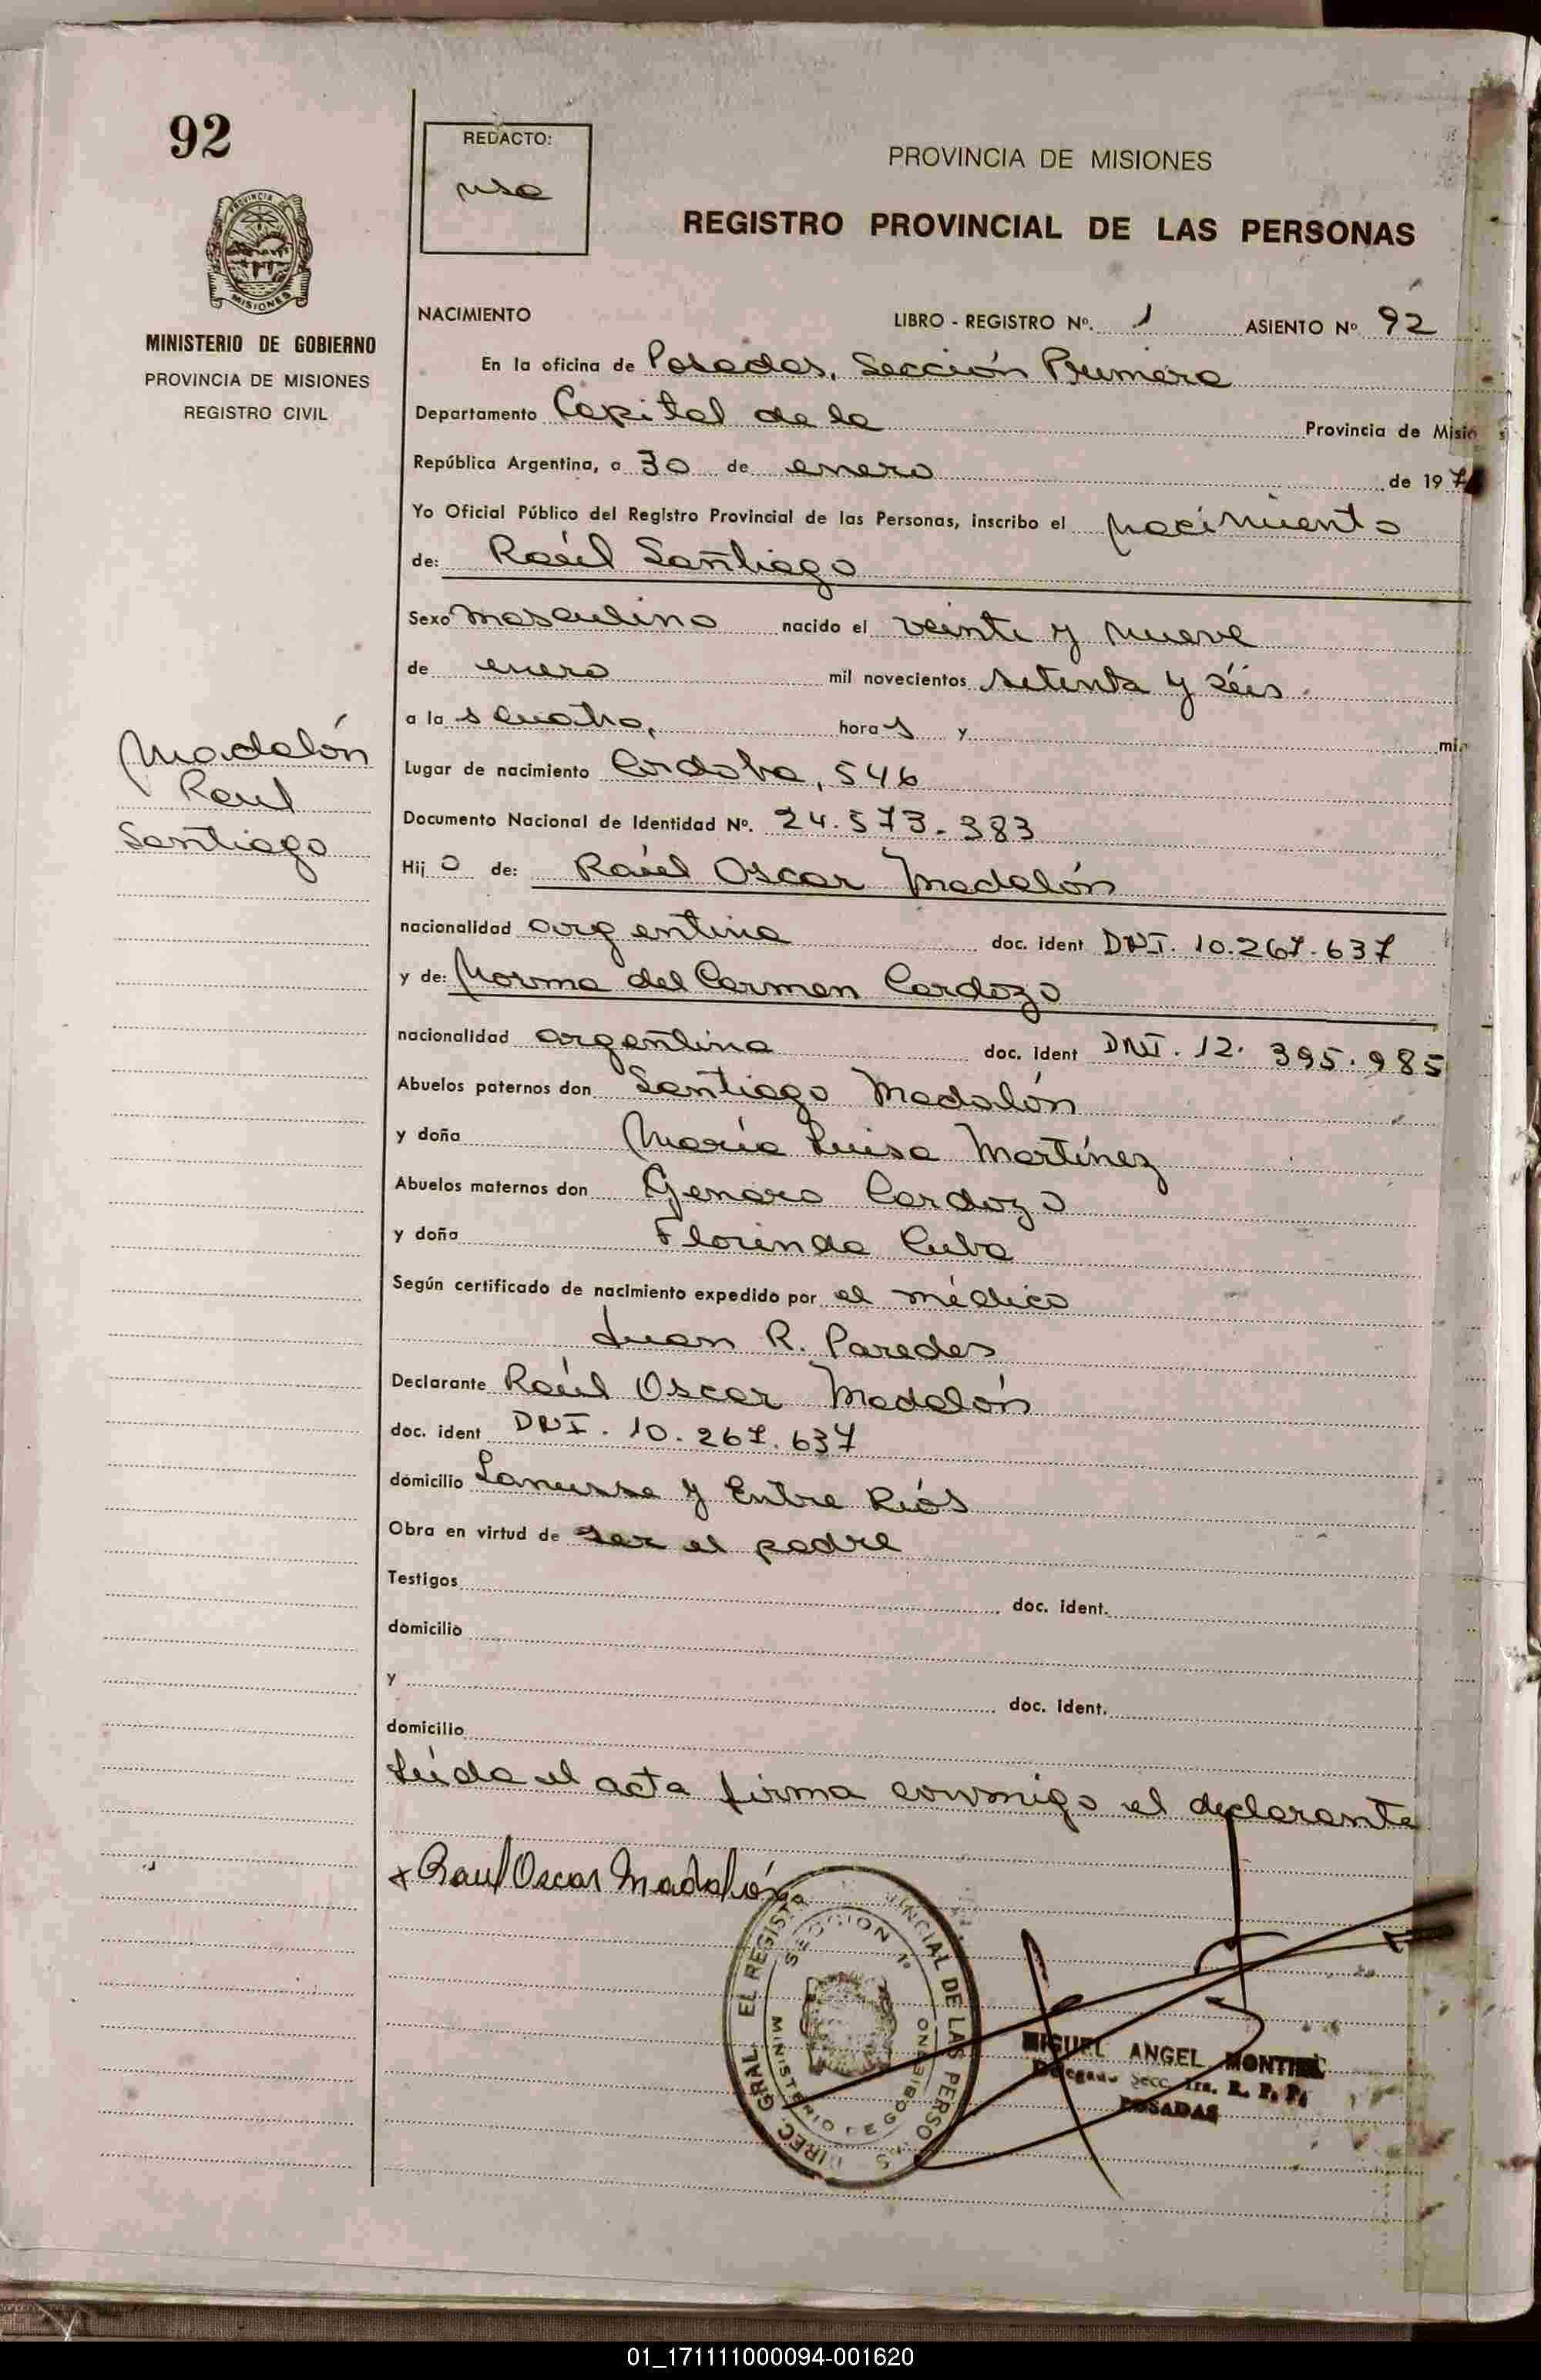 92
REDACTO:
PROVINCIA DE MISIONES
REGISTRO PROVINCIAL DE LAS PERSONAS
PROVINCIA DE
MISIONES
MINISTERIO DE GOBIERNO
PROVINCIA DE MISIONES
REGISTRO CIVIL
NACIMIENTO LIBRO - REGISTRO Nº. 1 ASIENTO Nº 92
En la oficina de Posadas, Sección Primera
Departamento Capital de la Provincia de Misio
República Argentina, a 30 de enero de 197
Yo Oficial Público del Registro Provincial de las Personas, inscribo el nacimiento
de: Raúl Santiago
Sexo masculino nacido el veinte y nueve
de enero mil novecientos setenta y séis
a la s cuatro, hora s y min
Lugar de nacimiento Cordoba, 546
Documento Nacional de Identidad Nº. 24.573.383
Hij o de: Raúl Oscar Madalón
nacionalidad argentina doc. ident DNI. 10.267.637
y de: Norma del Carmen Cardozo
nacionalidad argentina doc. ident DNI. 12. 395.985
Abuelos paternos don Santiago Madalón
y doña María Luisa Martínez
Abuelos maternos don Genaro Cardozo
y doña Florinda Cuba
Según certificado de nacimiento expedido por el médico
Juan R. Paredes
Declarante Raúl Oscar Madalón
doc. ident DNI. 10.267.637
domicilio Lanusse y Entre Ríos
Obra en virtud de ser el padre
Testigos doc. ident.
domicilio
y doc. ident.
domicilio
Leída el acta firma conmigo el declarante
Madalón
Raul
Santiago
x Raul Oscar Madalón
DIREC. GRAL EL REGISTR VINCIAL DE LAS PERSO S
SECCION 1º
MINISTERIO DE GOBIERNO
MIGUEL ANGEL MONTIEL
Delegado Secc. 1ra. R. P. P.
POSADAS
01_171111000094-001620